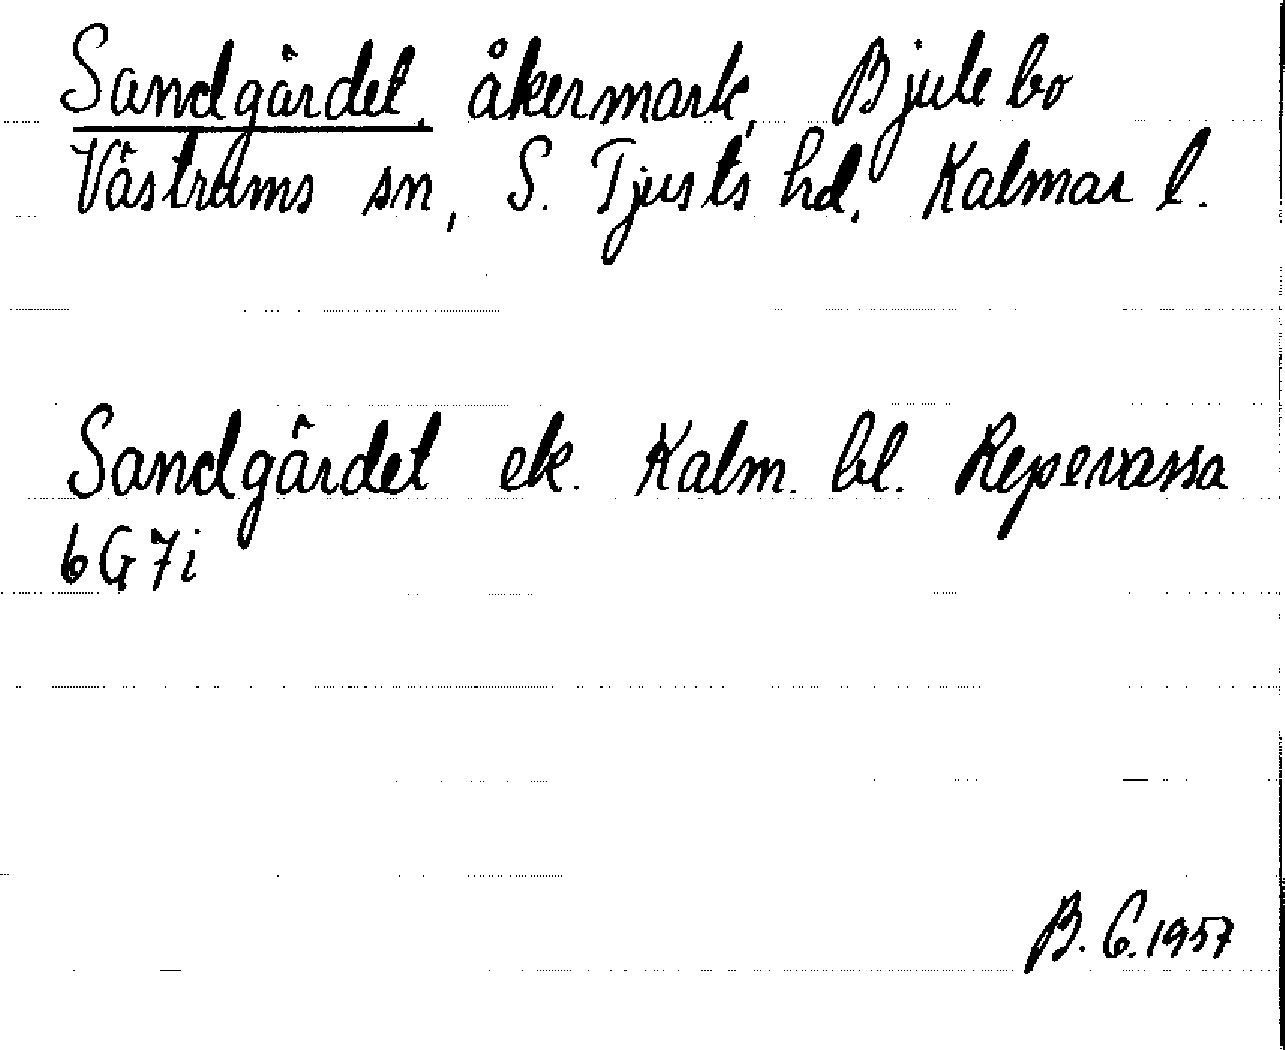 Sandgärdet, åkermark, Bjulebo
Västrums sn, S. Tjusts hd, Kalmar l.
Sandgärdet ek. Kalm. bl. Repevassa
6G7i
B. G. 1957